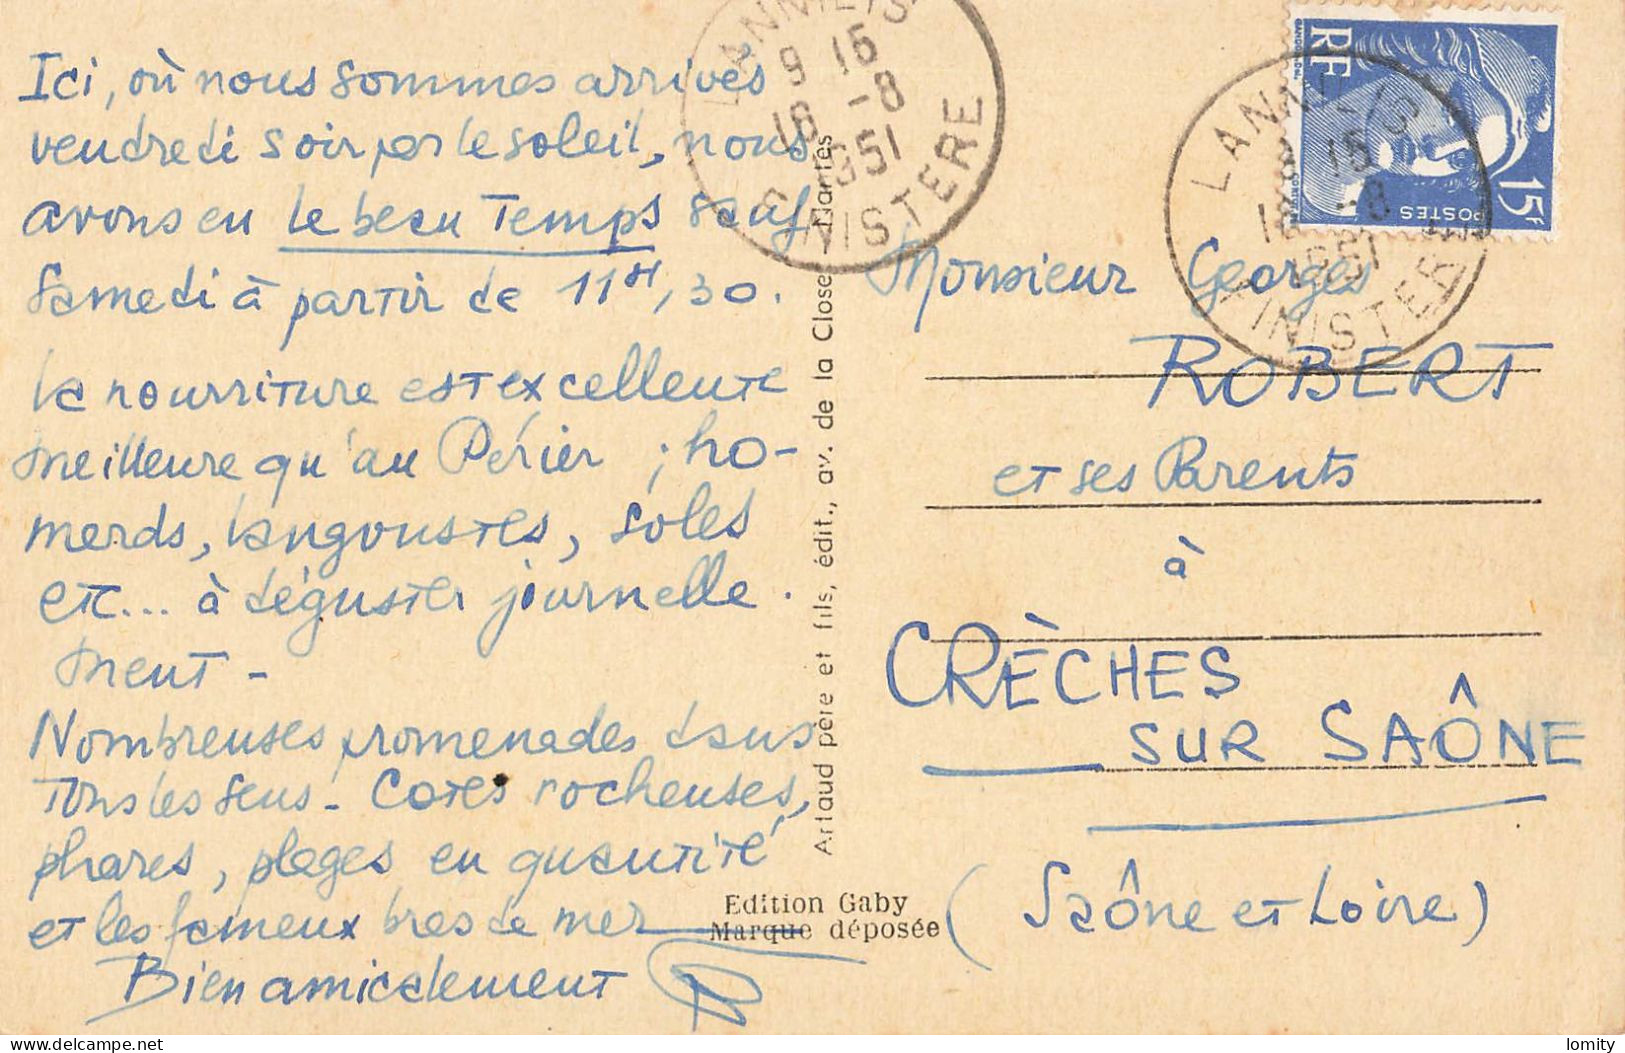 Ici, où nous sommes arrivés
vendredi soir par le soleil, nous
avons eu le beau Temps sauf
Samedi à partir de 11H,30.
La nourriture est excellente
meilleure qu'au Périer ; ho-
mards, langoustes, soles
etc... à déguster journelle.
ment -
Nombreuses promenades dans
Tous les sens - Cotes rocheuses,
phares, plages en quantité
et les fameux bras de mer
Bien amicalement
Artaud père et fils, édit., av. de la Close - Nantes
Edition Gaby
Marque déposée
LANNILIS
9 15
16 -8
1951
FINISTERE
RF
15F
POSTES
LANNILIS
15
16 -8
1951
FINISTERE
Monsieur Georges
ROBERT
et ses Parents
à
CRÈCHES
SUR SAÔNE
(Saône et Loire)
www.delcampe.net
lomity